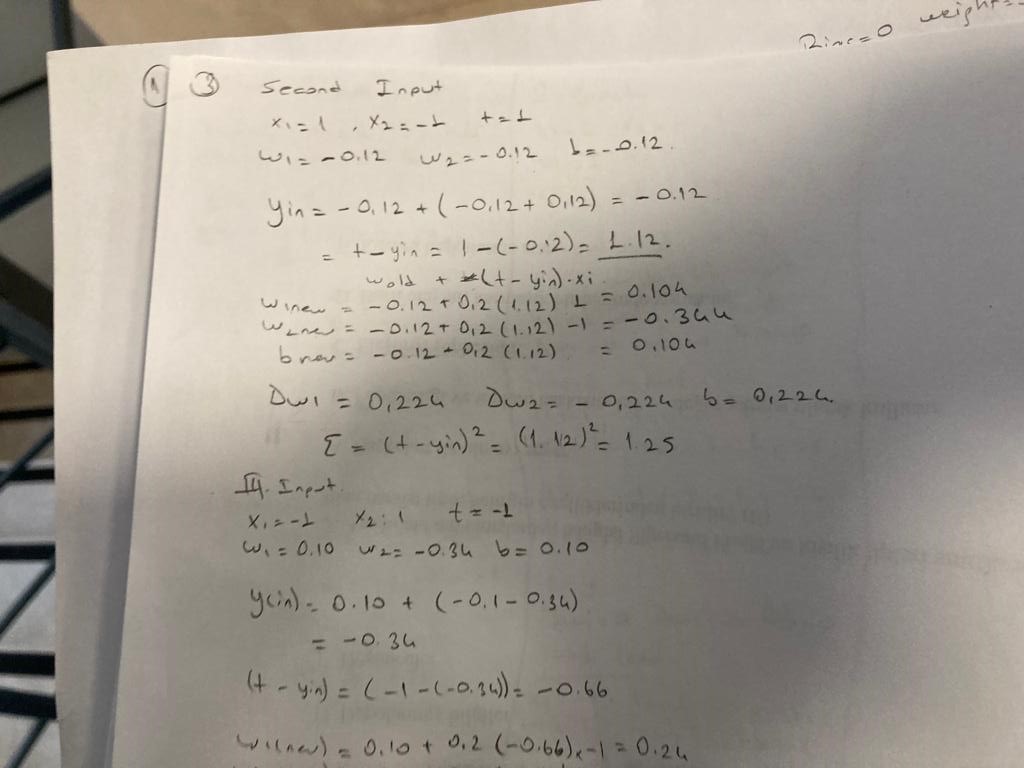 Binc=0 weight=
① ③ Second Input
x1 = 1 , x2 = -1 t = 1
w1 = -0.12 w2 = -0.12 b = -0.12.
yin = -0.12 + (-0.12 + 0.12) = -0.12
= t - yin = 1 - (-0.12) = 1.12.
wold + α(t - yin).xi
w1new = -0.12 + 0.2 (1.12) 1 = 0.104
w2new = -0.12 + 0.2 (1.12) -1 = -0.344
bnew = -0.12 + 0.2 (1.12) = 0.104
Dw1 = 0,224 Dw2 = -0,224 b = 0,224.
E = (t - yin)² = (1.12)² = 1.25
III. Input.
x1 = -1 x2 : 1 t = -1
w1 = 0.10 w2 = -0.34 b = 0.10
y(in) = 0.10 + (-0.1 - 0.34)
= -0.34
(t - yin) = (-1 - (-0.34)) = -0.66
w1(new) = 0.10 + 0.2 (-0.66) x -1 = 0.24